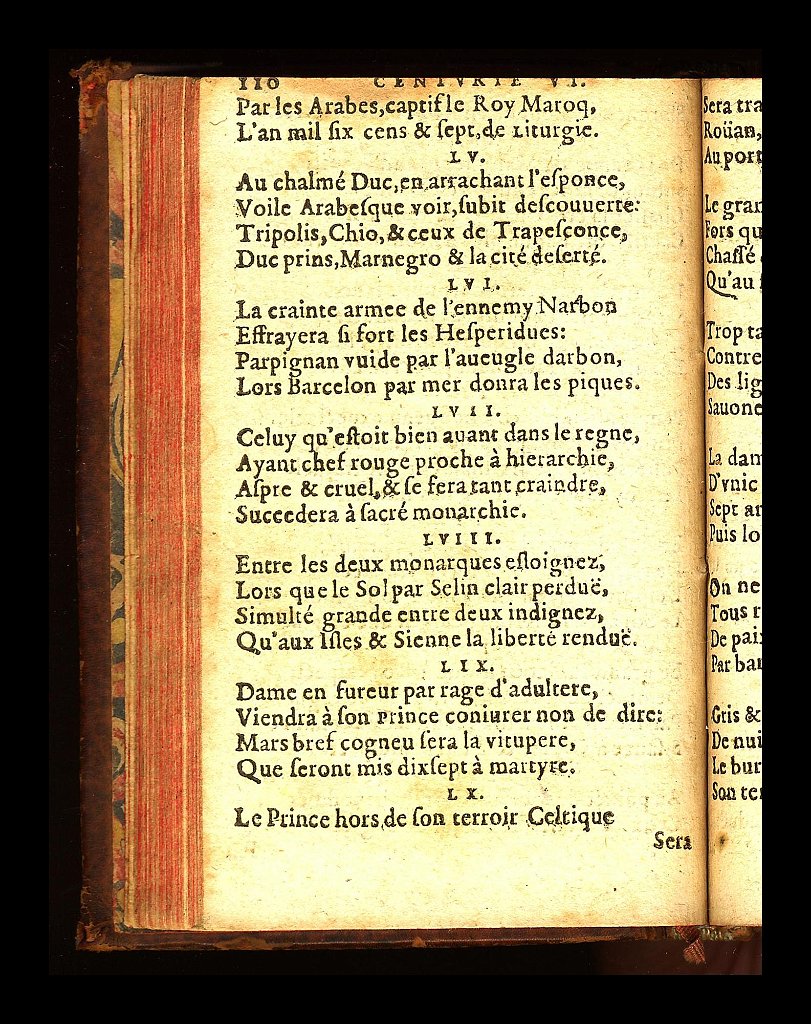 110 CENTVRIE VI.
Par les Arabes, captif le Roy Maroq,
L'an mil ſix cens & ſept, de Liturgie.
LV.
Au chalmé Duc, en arrachant l'eſponce,
Voile Arabeſque voir, ſubit deſcouuerte:
Tripolis, Chio, & ceux de Trapeſconce,
Duc prins, Marnegro & la cité deſerté.
LVI.
La crainte armee de l'ennemy Narbon
Effrayera ſi fort les Heſperidues:
Parpignan vuide par l'aueugle darbon,
Lors Barcelon par mer donra les piques.
LVII.
Celuy qu'eſtoit bien auant dans le regne,
Ayant chef rouge proche à hierarchie,
Aſpre & cruel, & ſe fera tant craindre,
Succedera à ſacré monarchie.
LVIII.
Entre les deux monarques eſloignez,
Lors que le Sol par Selin clair perduë,
Simulté grande entre deux indignez,
Qu'aux Iſles & Sienne la liberté renduë.
LIX.
Dame en fureur par rage d'adultere,
Viendra à ſon Prince coniurer non de dire:
Mars bref cogneu ſera la vitupere,
Que ſeront mis dixſept à martyre.
LX.
Le Prince hors de ſon terroir Celtique
Sera
Sera tra
Roüan,
Au port
Le gran
Fors qu
Chaſſé
Qu'au
Trop ta
Contre
Des lig
Sauone
La dam
D'vnic
Sept an
Puis lo
On ne
Tous r
De paix
Par bar
Gris &
De nui
Le bur
Son te